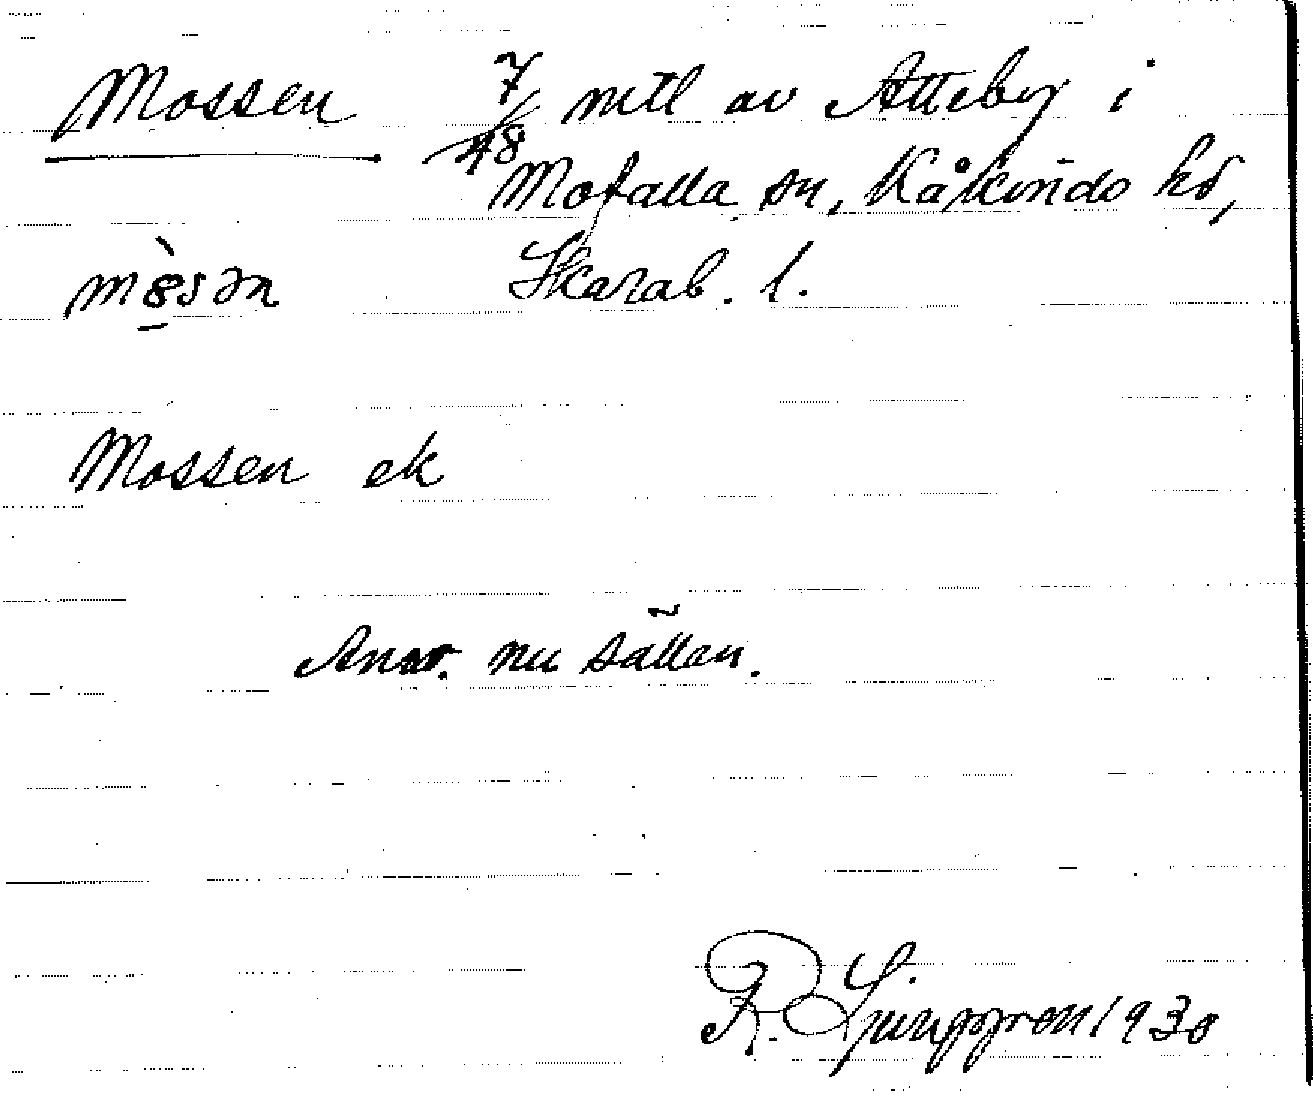 Mossen 7/48 mtl av Atteby i
Mofalla sn, Kåkinds hd,
mòsən Skarab. l.
Mossen ek
Anv. nu sällan.
R. Ljunggren 1930